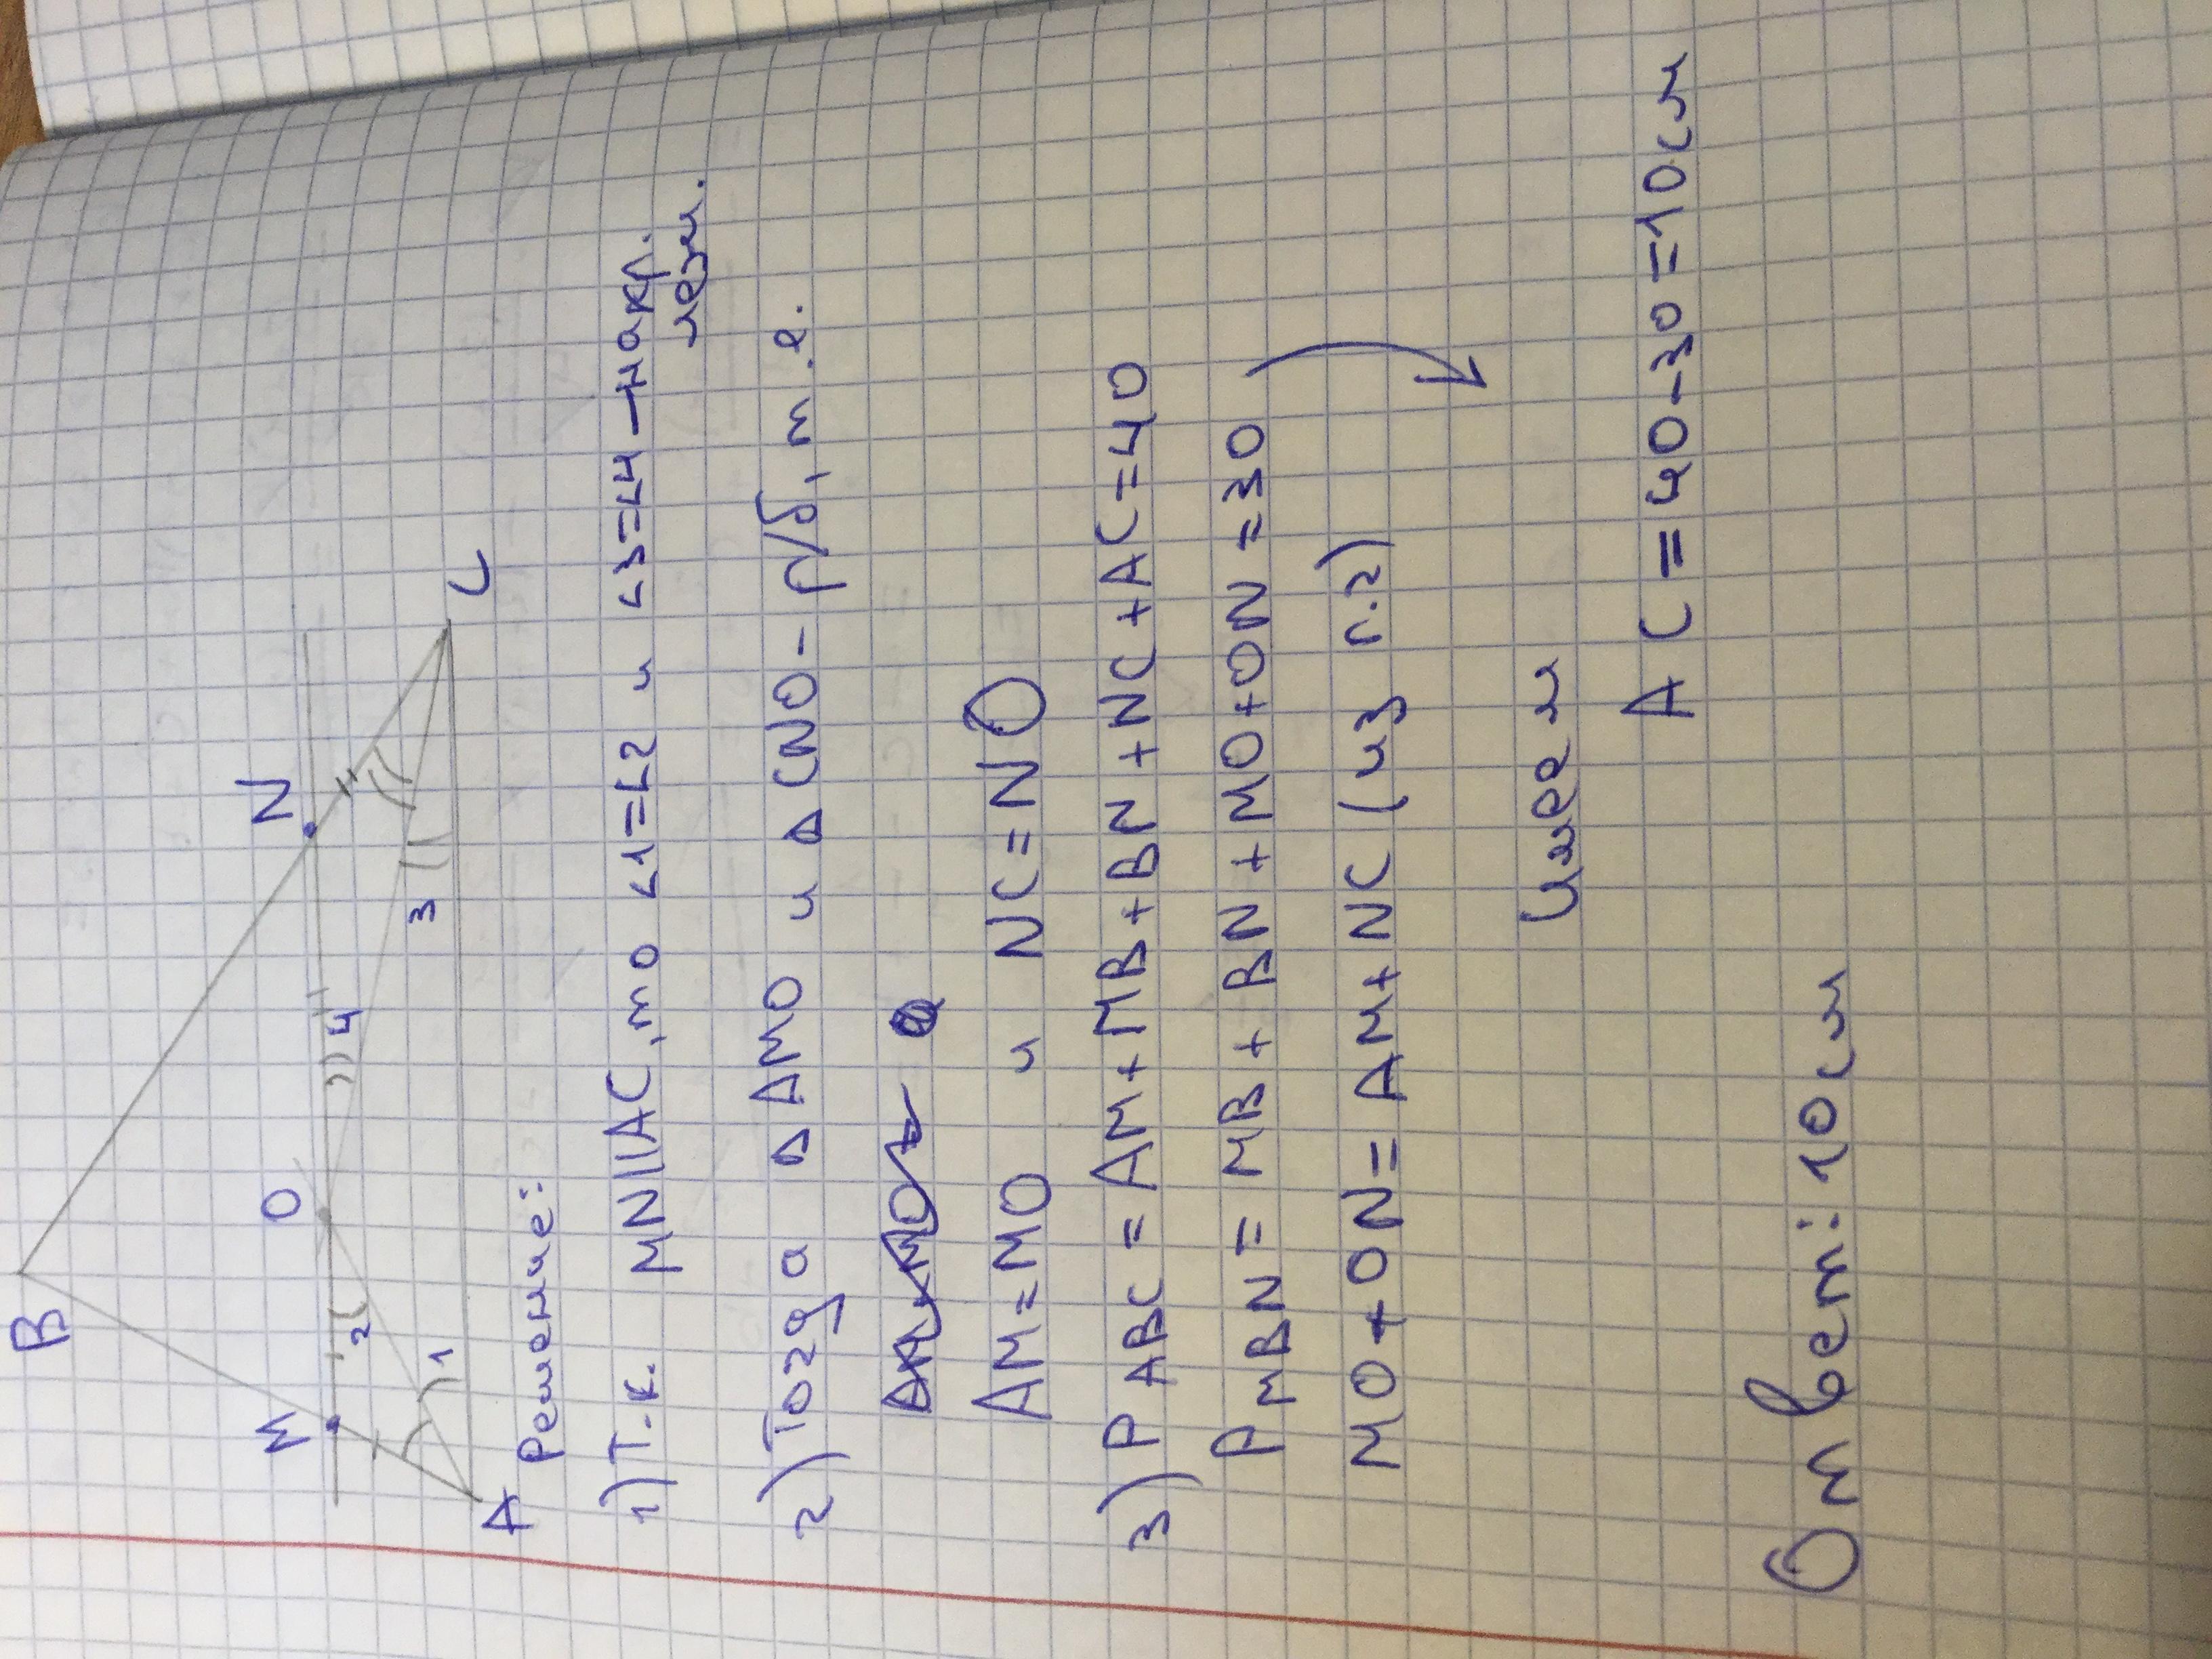 B
M O N
2 4
1 3
A C
Решение:
1) Т.к. MN||AC, то ∠1=∠2 и ∠3=∠4 – накр.
леж.
2) Тогда △AMO и △CNO – р/б, т.е.
AM=MO и NC=NO
3) P ABC = AM+MB+BN+NC+AC=40
P MBN = MB+BN+MO+ON=30
MO+ON=AM+NC (из п.2)
Имеем
AC=40-30=10см
Ответ: 10см